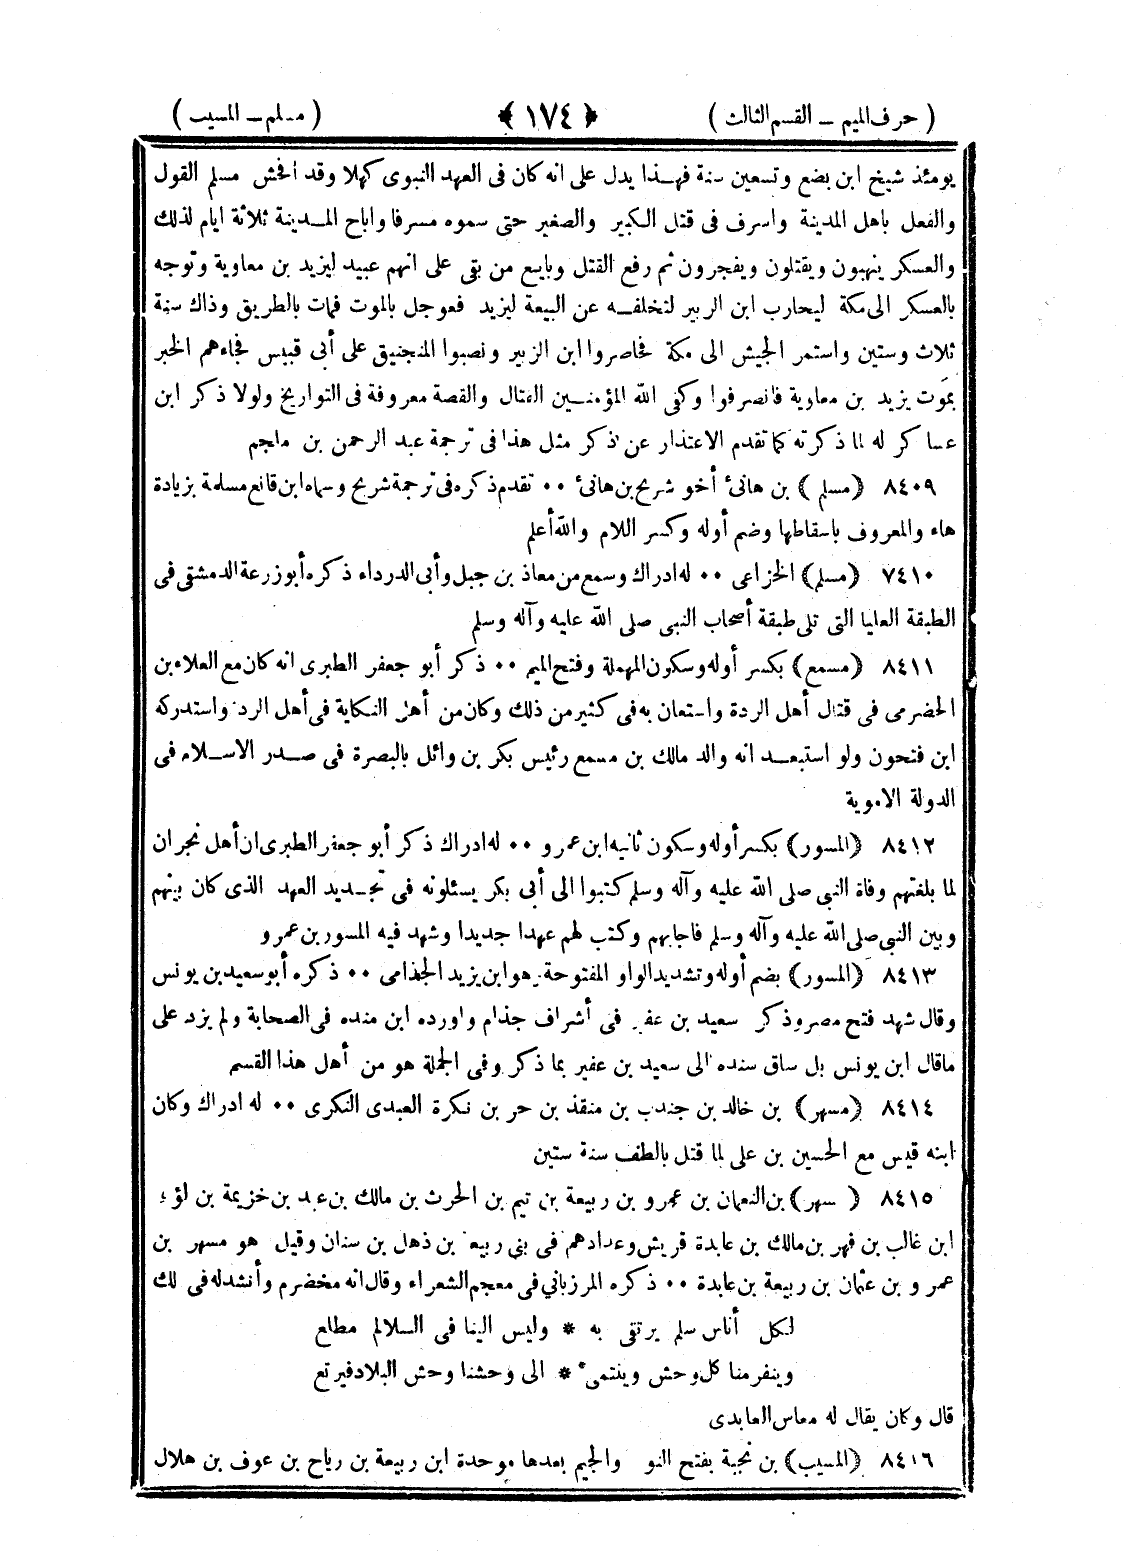 ( حرف الميم – القسم الثالث ) ﴿ ١٧٤ ﴾ ( مسلم – المسيب )
يومئذ شيخ ابن بضع وتسعين سنة فهذا يدل على انه كان فى العهد النبوى كهلا وقد أفحش مسلم القول
والفعل باهل المدينة واسرف فى قتل الكبير والصغير حتى سموه مسرفا واباح المدينة ثلاثة ايام لذلك
والعسكر ينهبون ويقتلون ويفجرون ثم رفع القتل وبايع من بقى على انهم عبيد ليزيد بن معاوية وتوجه
بالعسكر الى مكة ليحارب ابن الزبير لتخلفه عن البيعة ليزيد فعوجل بالموت فمات بالطريق وذاك سنة
ثلاث وستين واستمر الجيش الى مكة فحاصروا ابن الزبير ونصبوا المنجنيق على أبى قبيس فجاءهم الخبر
بموت يزيد بن معاوية فانصرفوا وكفى الله المؤمنين القتال والقصة معروفة فى التواريخ ولولا ذكر ابن
عساكر له لما ذكرته كما تقدم الاعتذار عن ذكر مثل هذا فى ترجمة عبد الرحمن بن ملجم
٨٤٠٩ (مسلم) بن هانئ أخو شريح بن هانئ ٠٠ تقدم ذكره فى ترجمة شريح وسماه ابن قانع مسلمة بزيادة
هاء والمعروف باسقاطها وضم أوله وكسر اللام والله أعلم
٧٤١٠ (مسلم) الخزاعى ٠٠ له ادراك وسمع من معاذ بن جبل وأبى الدرداء ذكره أبو زرعة الدمشقى فى
الطبقة العليا التى تلى طبقة أصحاب النبى صلى الله عليه وآله وسلم
٨٤١١ (مسمع) بكسر أوله وسكون المهملة وفتح الميم ٠٠ ذكر أبو جعفر الطبرى انه كان مع العلاء بن
الحضرمى فى قتال أهل الردة واستعان به فى كثير من ذلك وكان من أهل النكاية فى أهل الرد واستدركه
ابن فتحون ولو استبعد انه والد مالك بن مسمع رئيس بكر بن وائل بالبصرة فى صدر الاسلام فى
الدولة الاموية
٨٤١٢ (المسور) بكسر أوله وسكون ثانيه ابن عمرو ٠٠ له ادراك ذكر أبو جعفر الطبرى ان أهل نجران
لما بلغتهم وفاة النبى صلى الله عليه وآله وسلم كتبوا الى أبى بكر يسئلونه فى تجديد العهد الذى كان بينهم
وبين النبى صلى الله عليه وآله وسلم فاجابهم وكتب لهم عهدا جديدا وشهد فيه المسور بن عمرو
٨٤١٣ (المسور) بضم أوله وتشديد الواو المفتوحة هو ابن يزيد الجذامى ٠٠ ذكره أبو سعيد بن يونس
وقال شهد فتح مصر وذكر سعيد بن عفير فى أشراف جذام واورده ابن منده فى الصحابة ولم يزد على
ماقال ابن يونس بل ساق سنده الى سعيد بن عفير بما ذكر وفى الجملة هو من أهل هذا القسم
٨٤١٤ (مسهر) بن خالد بن جندب بن منقذ بن حر بن نكرة العبدى النكرى ٠٠ له ادراك وكان
ابنه قيس مع الحسين بن على لما قتل بالطف سنة ستين
٨٤١٥ ( سهر) بن النعمان بن عمرو بن ربيعة بن تيم بن الحرث بن مالك بن عبد بن خزيمة بن لؤى
ابن غالب بن فهر بن مالك بن عابدة قريش وعدادهم فى بنى ربيع بن ذهل بن سنان وقيل هو مسهر بن
عمرو بن عثمان بن ربيعة بن عابدة ٠٠ ذكره المرزبانى فى معجم الشعراء وقال انه مخضرم وأنشد له فى لك
لكل أناس سلم يرتقى به * وليس الينا فى السلالم مطلع
وينفر منا كل وحش وينتمى * الى وحشنا وحش البلاد فيرتع
قال وكان يقال له معاس العابدى
٨٤١٦ (المسيب) بن نجبة بفتح النو والجيم بعدها موحدة ابن ربيعة بن رياح بن عوف بن هلال